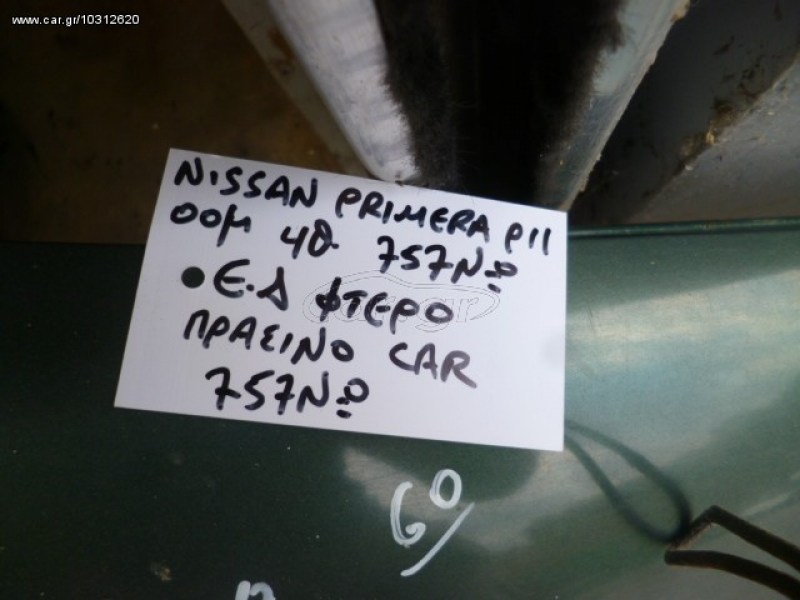 www.car.gr/10312620
NISSAN PRIMERA P11
00μ 4θ 757Nο
• Ε.Δ ΦΤΕΡΟ
ΠΡΑΣΙΝΟ CAR
757Nο
60